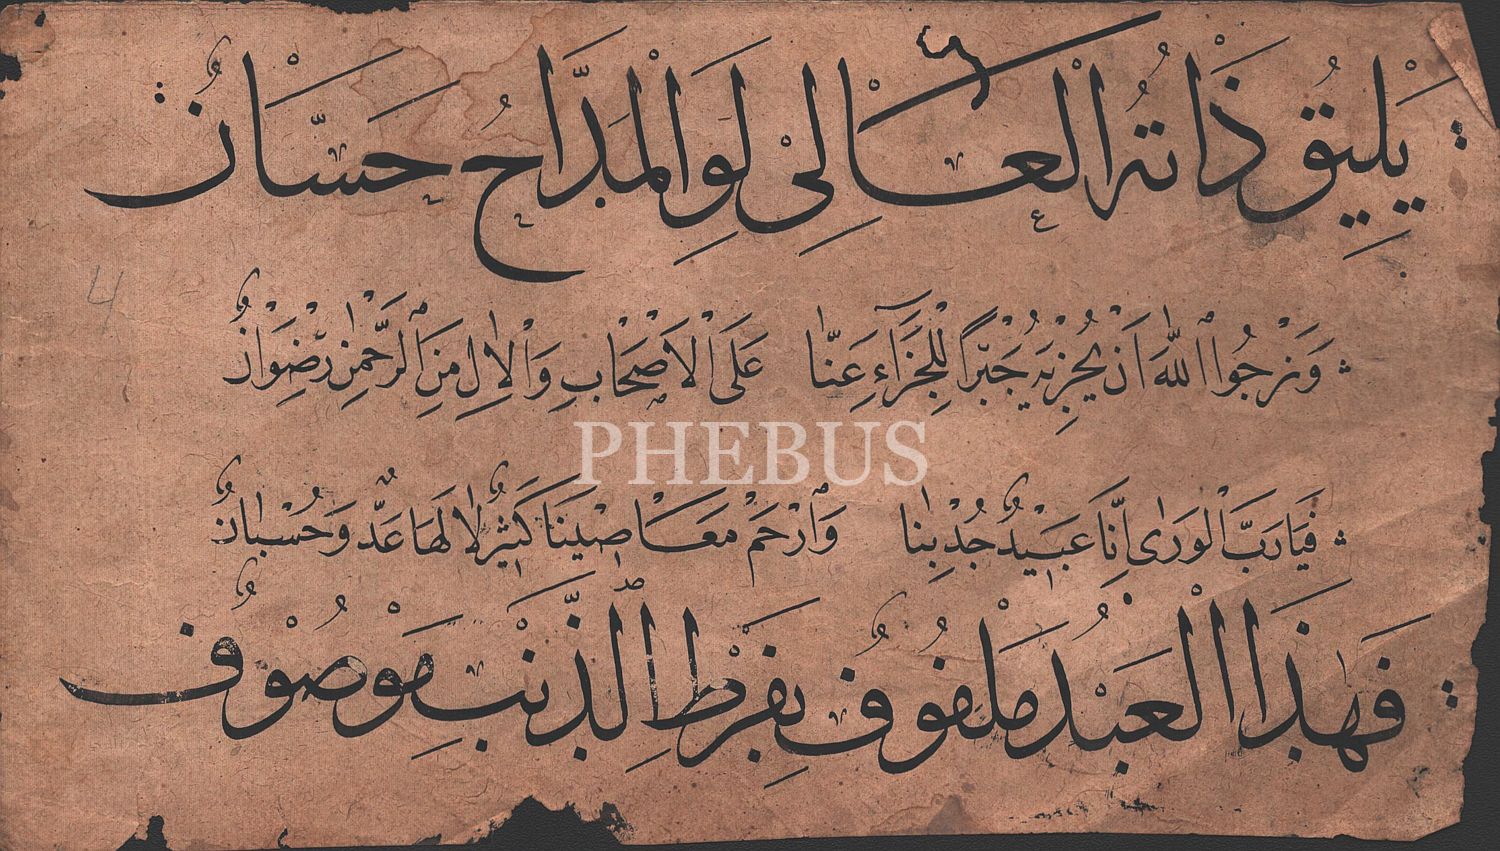 يَلِيقُ ذَاتُهُ الْعَالِي لَوِ الْمَدَّاحُ حَسَّانٌ
وَنَرْجُوا اللّٰهَ اَنْ يُجْزِيَهُ جَبْرًا لِلْجَزَآءِ عَنَّا عَلَى الْاَصْحَابِ وَالْاٰلِ مِنَ الرَّحْمٰنِ رِضْوَانٌ
PHEBUS
فَيَا رَبَّ الْوَرٰى اِنَّا عَبِيدٌ جُدْ بِنَا وَارْحَمْ مَعَاصِينَا كَثِيرٌ لَا لَهَا عَدٌّ وَحُسْبَانٌ
فَهٰذَا الْعَبْدُ مَلْفُوفٌ بِفَرْطِ الذَّنْبِ مَوْصُوفٌ